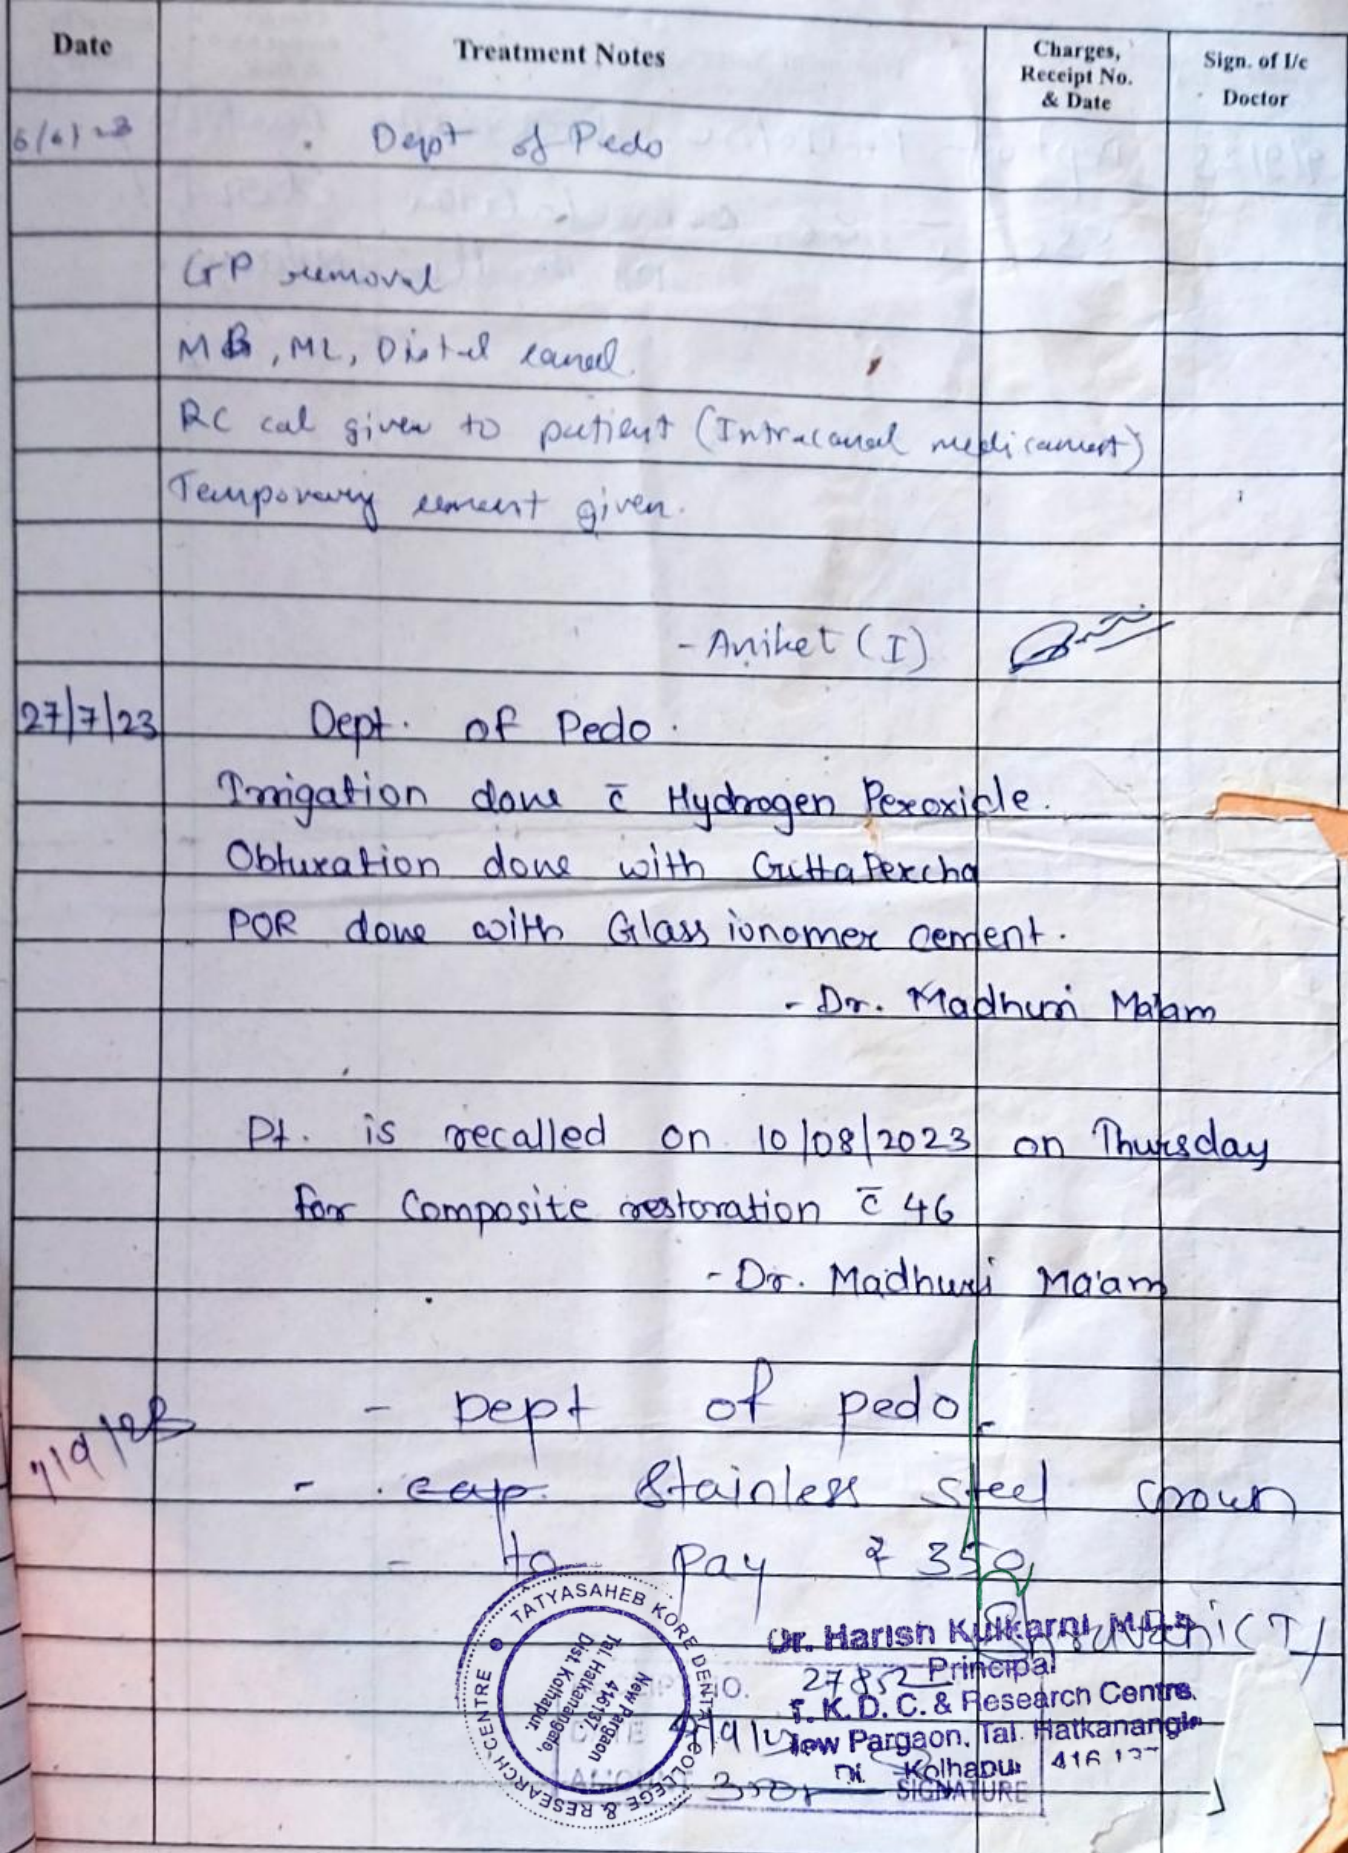 Date Treatment Notes Charges, Receipt No. & Date Sign. of I/c Doctor
Dept of Pedo
GP removal
MB, ML, Distal canal.
RC cal given to patient (Intracanal medicament)
Temporary cement given.
- Aniket (I)
27/7/23 Dept. of Pedo.
Irrigation done c̄ Hydrogen Peroxide.
Obturation done with GuttaPercha
POR done with Glass ionomer cement.
- Dr. Madhuri Ma'am
Pt. is recalled on 10/08/2023 on Thursday
for Composite restoration c̄ 46
- Dr. Madhuri Ma'am
7/9/23 - Dept of pedo.
- cap Stainless steel crown
- to pay ₹ 350
TATYASAHEB KORE DENTAL COLLEGE & RESEARCH CENTRE
New Pargaon
416137,
Tal. Hatkanangale,
Dist. Kolhapur.
Dr. Harish Kulkarni M.D.S
27852 Principal
T. K. D. C. & Research Centre.
New Pargaon, Tal. Hatkanangle
Kolhapur
SIGNATURE